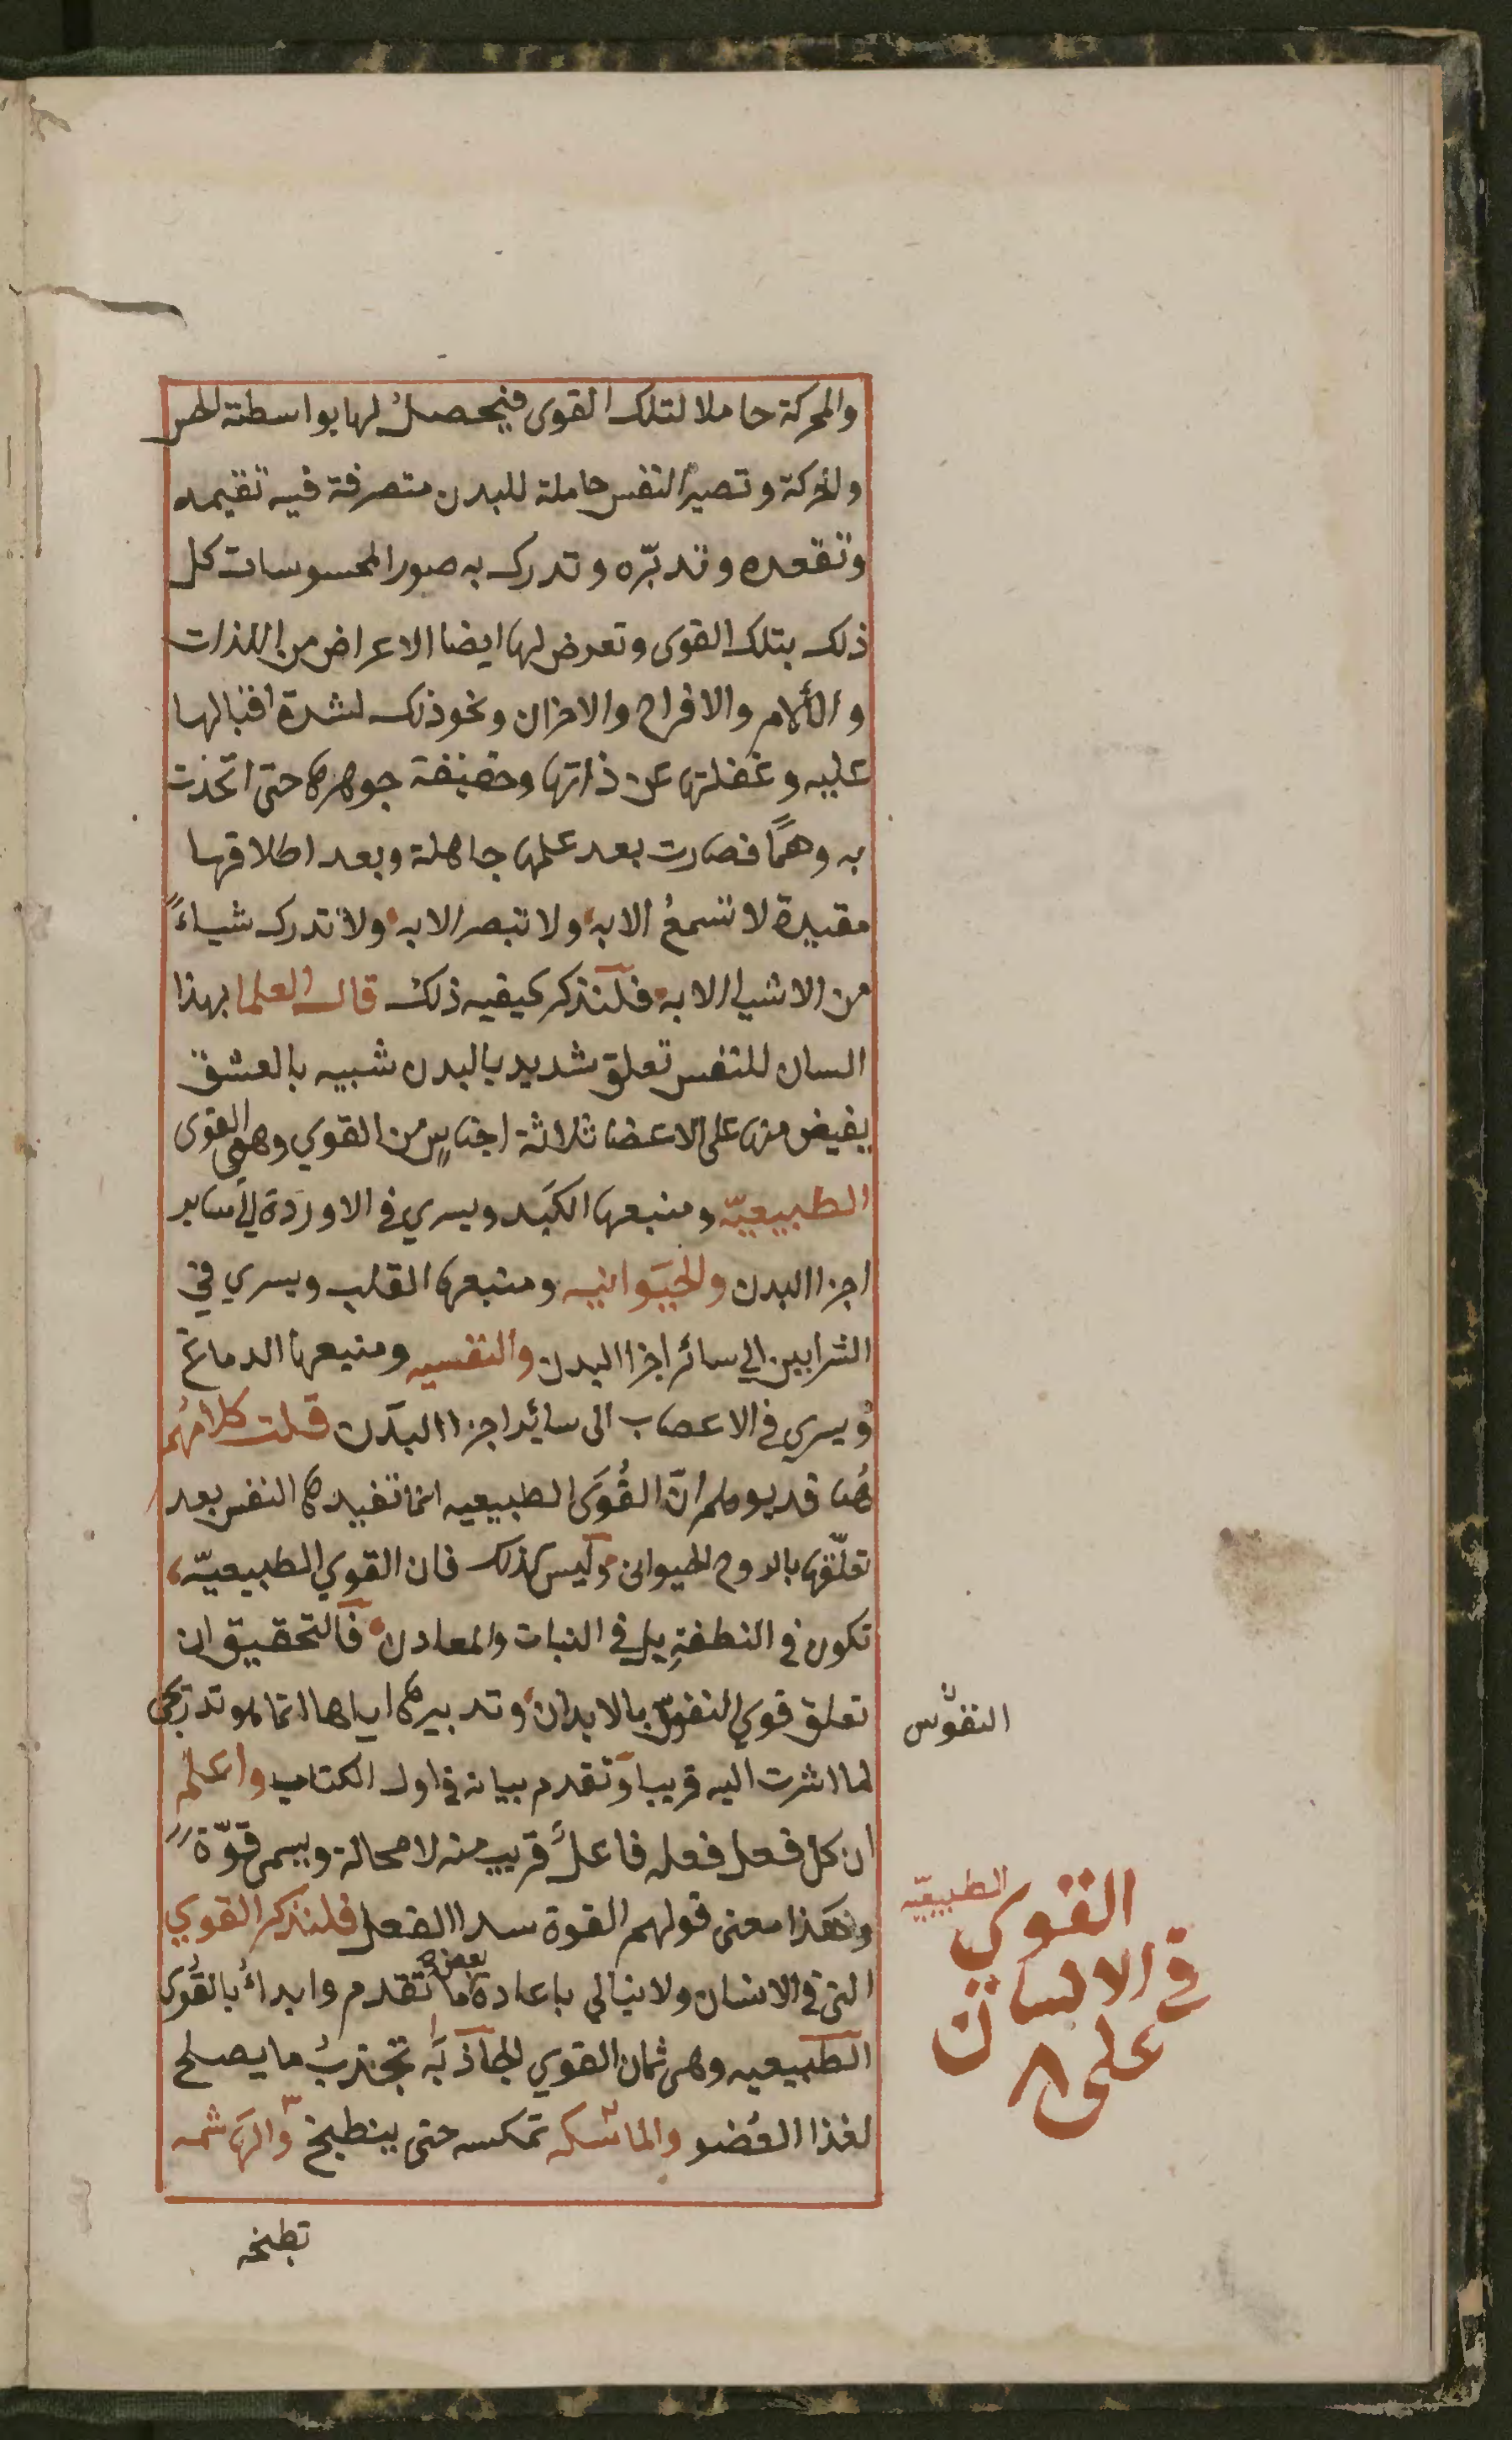 والمحركة حاملا لتلك القوى فيحصل لها بواسطته الحس
والحركة وتصير النفس حاملة للبدن متصرفة فيه تقيمه
وتقعده وتدبّره وتدرك به صور المحسوسات كل
ذلك بتلك القوى وتعرض لها ايضا الاعراض من اللذات
والألام والافراح والاحزان ونحو ذلك لشدة اقبالها
عليه وغفلتها عن ذاتها وحقيقة جوهرها حتى اتخذت
به وهمًا فصارت بعد علمها جاهلة وبعد اطلاقها
مقيدة لا تسمعُ الا به ولا تبصر الا به ولا تدرك شياءً
من الاشيا الا به فلنذكر كيفيه ذلك قال العلما بهذا
السان للنفس تعلق شديد بالبدن شبيه بالعشق
يفيض منها على الاعضا ثلاثة اجناسٍ من القوي وهي القوى
الطبيعيّة ومنبعها الكبد ويسري في الاوردة الى ساير
اجزا البدن والحيَوانيه ومنبعها القلب ويسري في
الشرايين الي سائر اجزا البدن والنفسيه ومنبعها الدماغ
ويسري في الاعصاب الى سائر اجزا البدن قلت كلامُهم
هُنا قد يوهم انّ القُوَى الطبيعيه انما تفيدها النفس بعد
تعلّقها بالروح الحيوانى وليس كذلك فان القوي الطبيعيّه
تكون في النطفةِ بل في النبات والمعادن فالتحقيق ان
تعلق قوي النفوس بالابدان وتدبيرها اياها انما هو تدريجى
لما اشرت اليه قريبا وتقدم بيانه في اول الكتاب واعلم
ان كل فعل فعله فاعلٌ قريب منه لا محالة ويسمى قوّةً
وهكذا معنى قولهم القوة مبدا الفعل فلنذكر القوي
التى في الانسان ولا نبالي باعادة بعض ما تقدم وابداءُ بالقُوى
الطبيعيه وهى ثمان القوي الجاذبَه تجذبُ ما يصلح
لغذا العُضو والماسكه تمكسه حتى ينطبخ والهاضمه
تطبخه
النفوس
القوي الطبيعيّه
في الانسان
على ٨